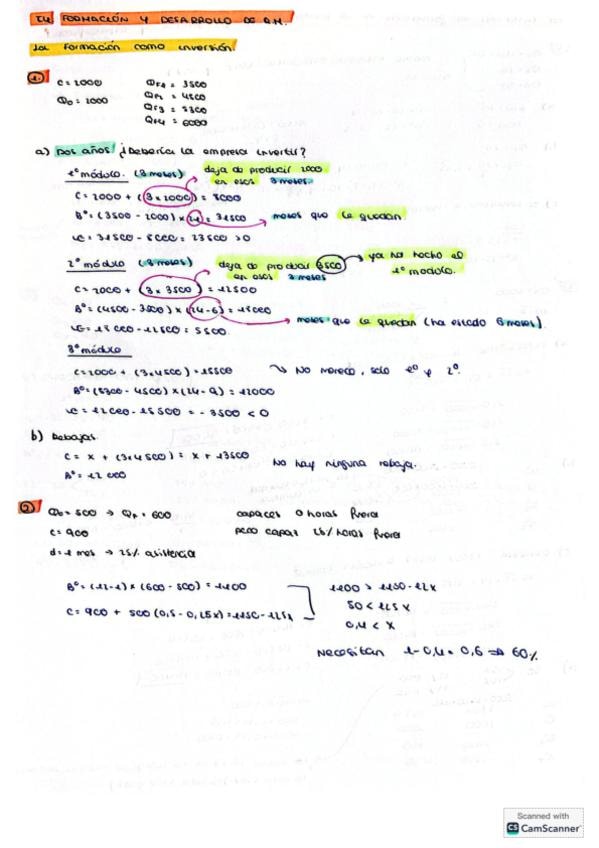 T4. FORMACIÓN Y DESARROLLO DE R.H.
La formación como inversión.
1. C = 2000
Q0 = 2000
QF1 = 3500
QF2 = 4500
QF3 = 5300
QF4 = 6000
a) Dos años ¿Debería la empresa invertir?
1º módulo. (3 meses)
deja de producir 2000
en esos 3 meses.
C = 2000 + (3 x 2000) = 8000
Bº = (3500 - 2000) x 21 = 31500
meses que le quedan.
VC = 31500 - 8000 = 23500 > 0
2º módulo (3 meses)
deja de producir 3500
en esos 3 meses
ya ha hecho el
1º modulo.
C = 2000 + (3 x 3500) = 12500
Bº = (4500 - 3500) x (24-6) = 18000
meses que le quedan (ha estado 6 meses).
VC = 18000 - 12500 = 5500.
3º módulo
C = 2000 + (3x4500) = 15500
No merece, solo 1º y 2º.
Bº = (5300 - 4500) x (24 - 9) = 12000
VC = 12000 - 15500 = - 3500 < 0
b) Rebajas.
C = x + (3x4500) = x + 13500
Bº = 12000
No hay ninguna rebaja.
2. Q0 = 500 → QF = 600
C = 900
d = 1 mes → 25% asistencia
capaces 0 horas fuera
pero capaz 25% horas fuera
Bº = (12-1) x (600 - 500) = 1100
C = 900 + 500 (0,5 - 0,25x) = 1150 - 125x
1100 > 1150 - 125x
50 < 125 x
0,4 < x
Necesitan 1-0,4 = 0,6 ⇒ 60%
Scanned with
CS CamScanner